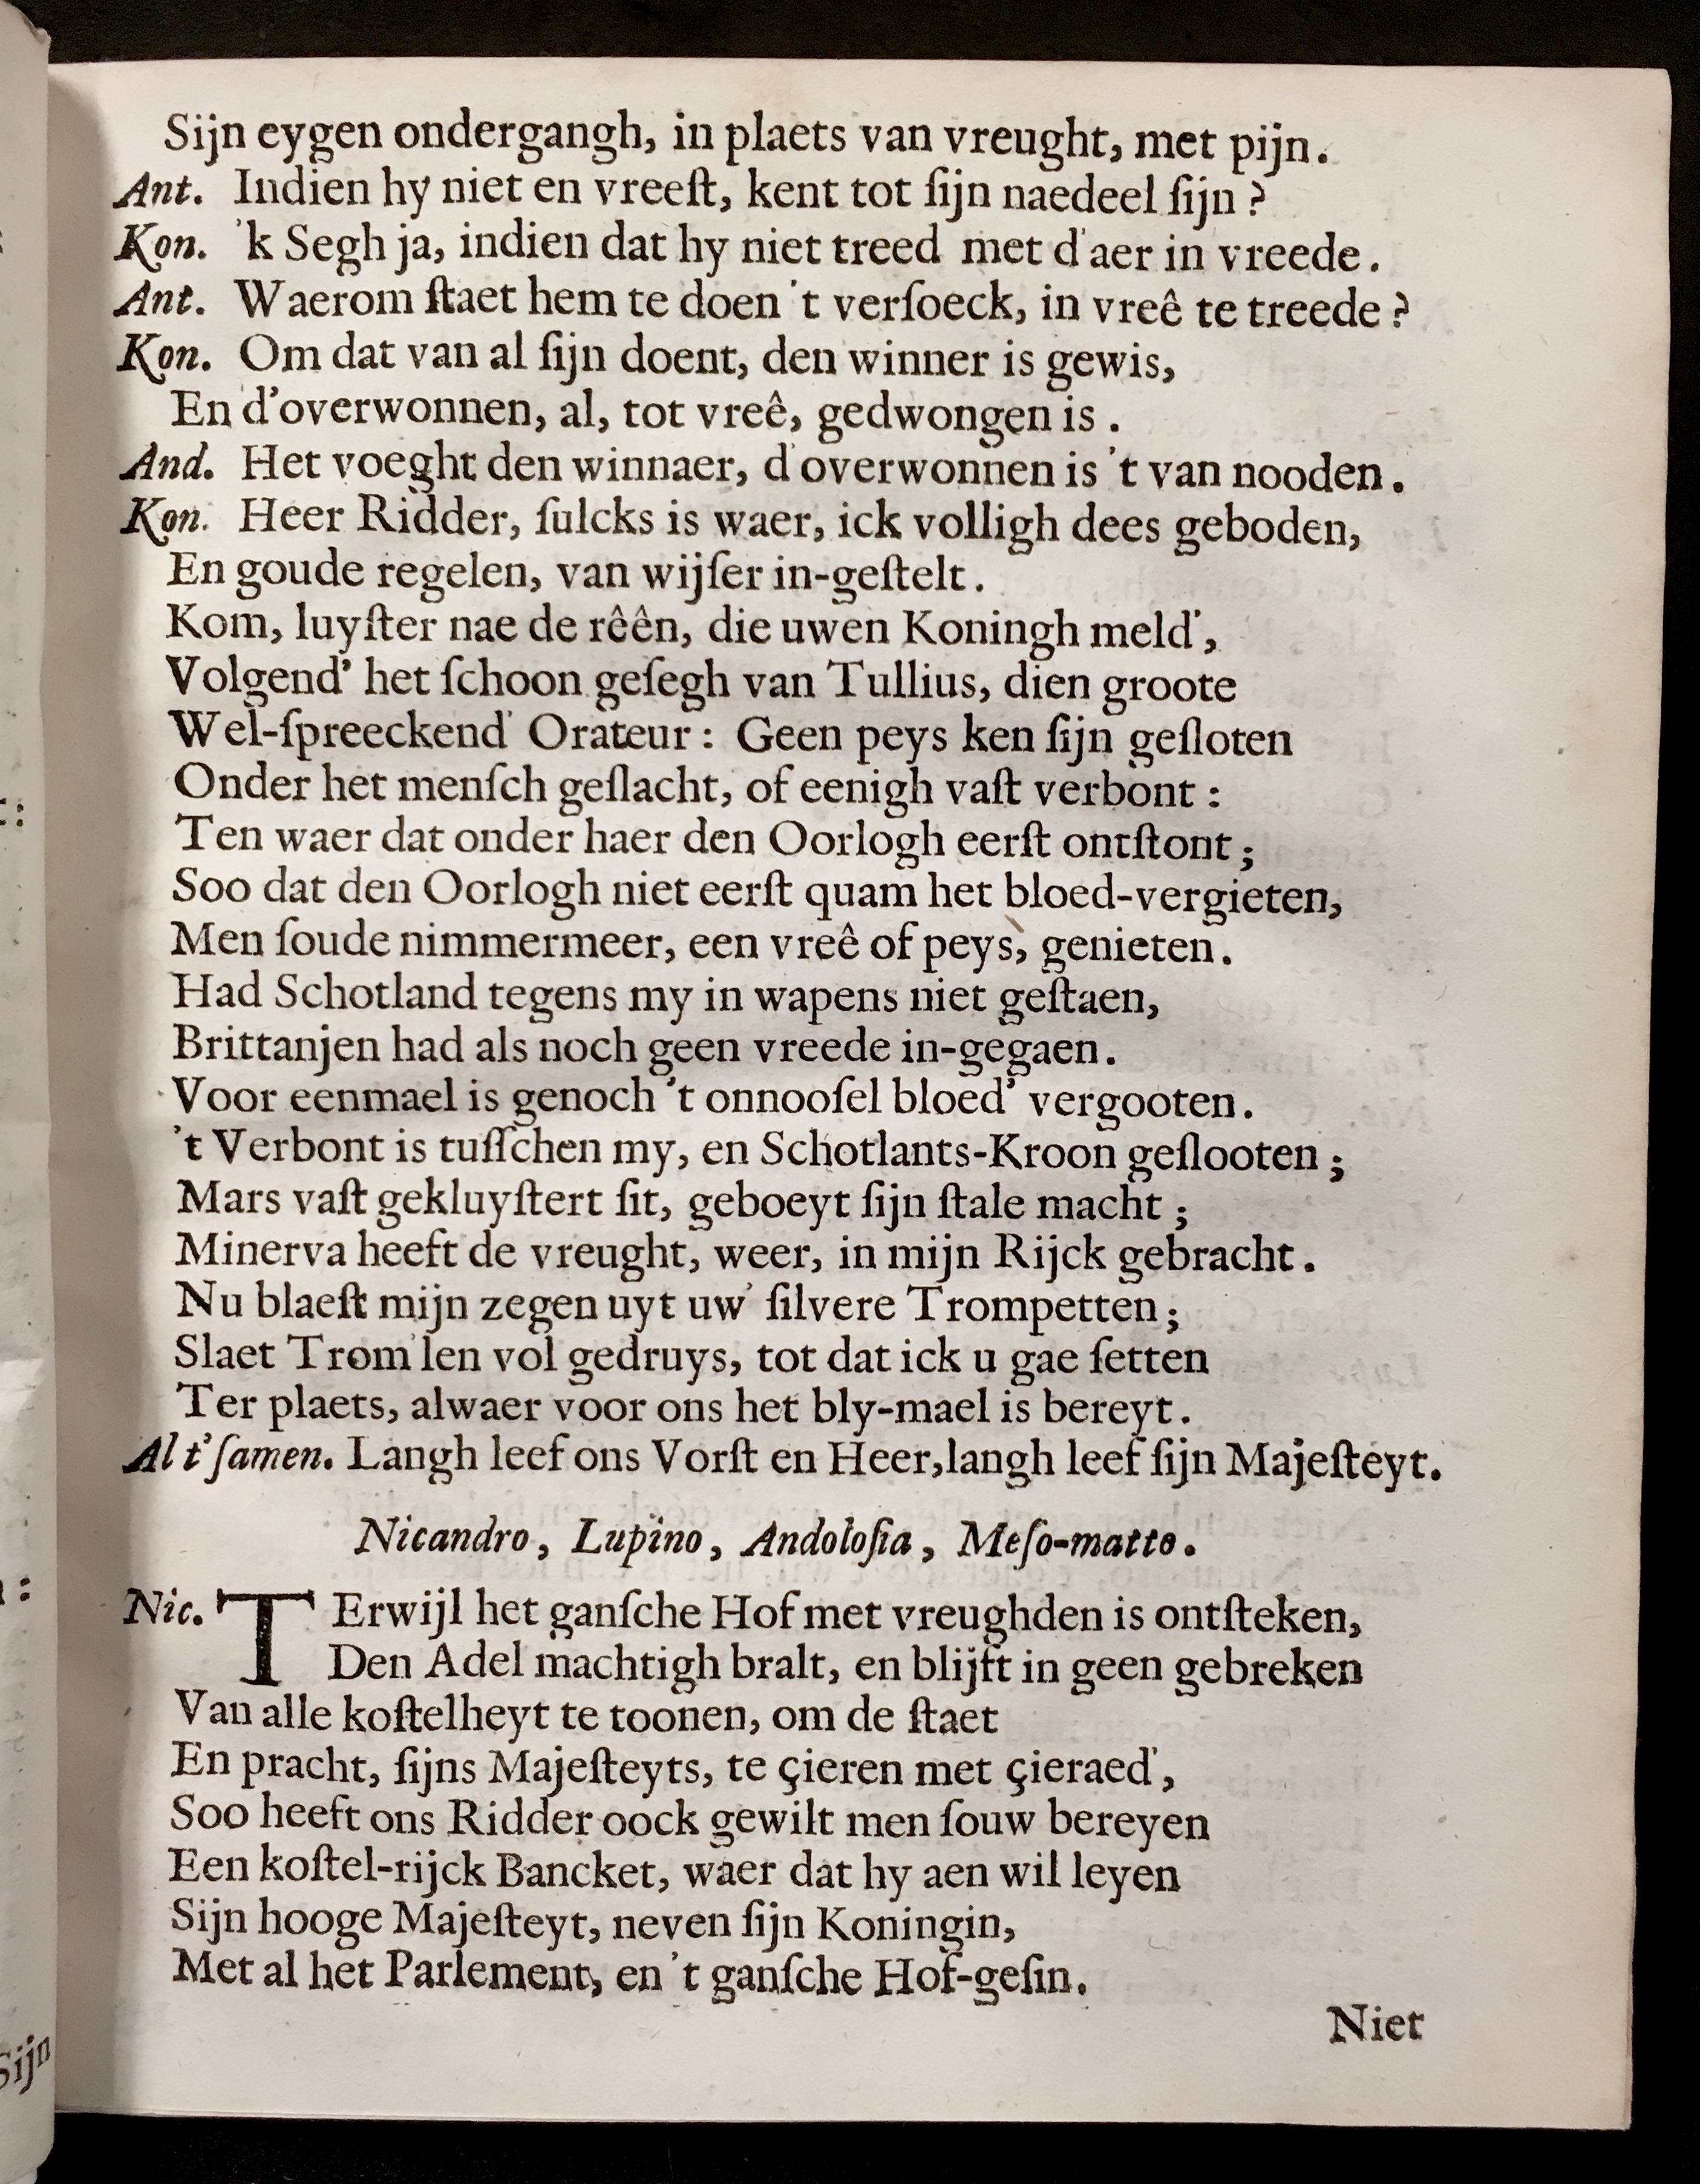 Sijn eygen ondergangh, in plaets van vreught, met pijn.
Ant. Indien hy niet en vreeſt, kent tot ſijn naedeel ſijn?
Kon. 'k Segh ja, indien dat hy niet treed met d'aer in vreede.
Ant. Waerom ſtaet hem te doen 't verſoeck, in vreê te treede?
Kon. Om dat van al ſijn doent, den winner is gewis,
En d'overwonnen, al, tot vreê, gedwongen is.
And. Het voeght den winnaer, d'overwonnen is 't van nooden.
Kon. Heer Ridder, ſulcks is waer, ick volligh dees geboden,
En goude regelen, van wijſer in-geſtelt.
Kom, luyſter nae de rêên, die uwen Koningh meld',
Volgend' het ſchoon geſegh van Tullius, dien groote
Wel-ſpreeckend' Orateur: Geen peys ken ſijn geſloten
Onder het menſch geſlacht, of eenigh vaſt verbont:
Ten waer dat onder haer den Oorlogh eerſt ontſtont;
Soo dat den Oorlogh niet eerſt quam het bloed-vergieten,
Men ſoude nimmermeer, een vreê of peys, genieten.
Had Schotland tegens my in wapens niet geſtaen,
Brittanjen had als noch geen vreede in-gegaen.
Voor eenmael is genoch 't onnooſel bloed' vergooten.
't Verbont is tuſſchen my, en Schotlants-Kroon geſlooten;
Mars vaſt gekluyſtert ſit, geboeyt ſijn ſtale macht;
Minerva heeft de vreught, weer, in mijn Rijck gebracht.
Nu blaeſt mijn zegen uyt uw' ſilvere Trompetten;
Slaet Trom'len vol gedruys, tot dat ick u gae ſetten
Ter plaets, alwaer voor ons het bly-mael is bereyt.
Al t'ſamen. Langh leef ons Vorſt en Heer, langh leef ſijn Majeſteyt.
Nicandro, Lupino, Andoloſia, Meſo-matto.
Nic. TErwijl het ganſche Hof met vreughden is ontſteken,
Den Adel machtigh bralt, en blijft in geen gebreken
Van alle koſtelheyt te toonen, om de ſtaet
En pracht, ſijns Majeſteyts, te çieren met çieraed',
Soo heeft ons Ridder oock gewilt men ſouw bereyen
Een koſtel-rijck Bancket, waer dat hy aen wil leyen
Sijn hooge Majeſteyt, neven ſijn Koningin,
Met al het Parlement, en 't ganſche Hof-geſin.
Niet
Sijn